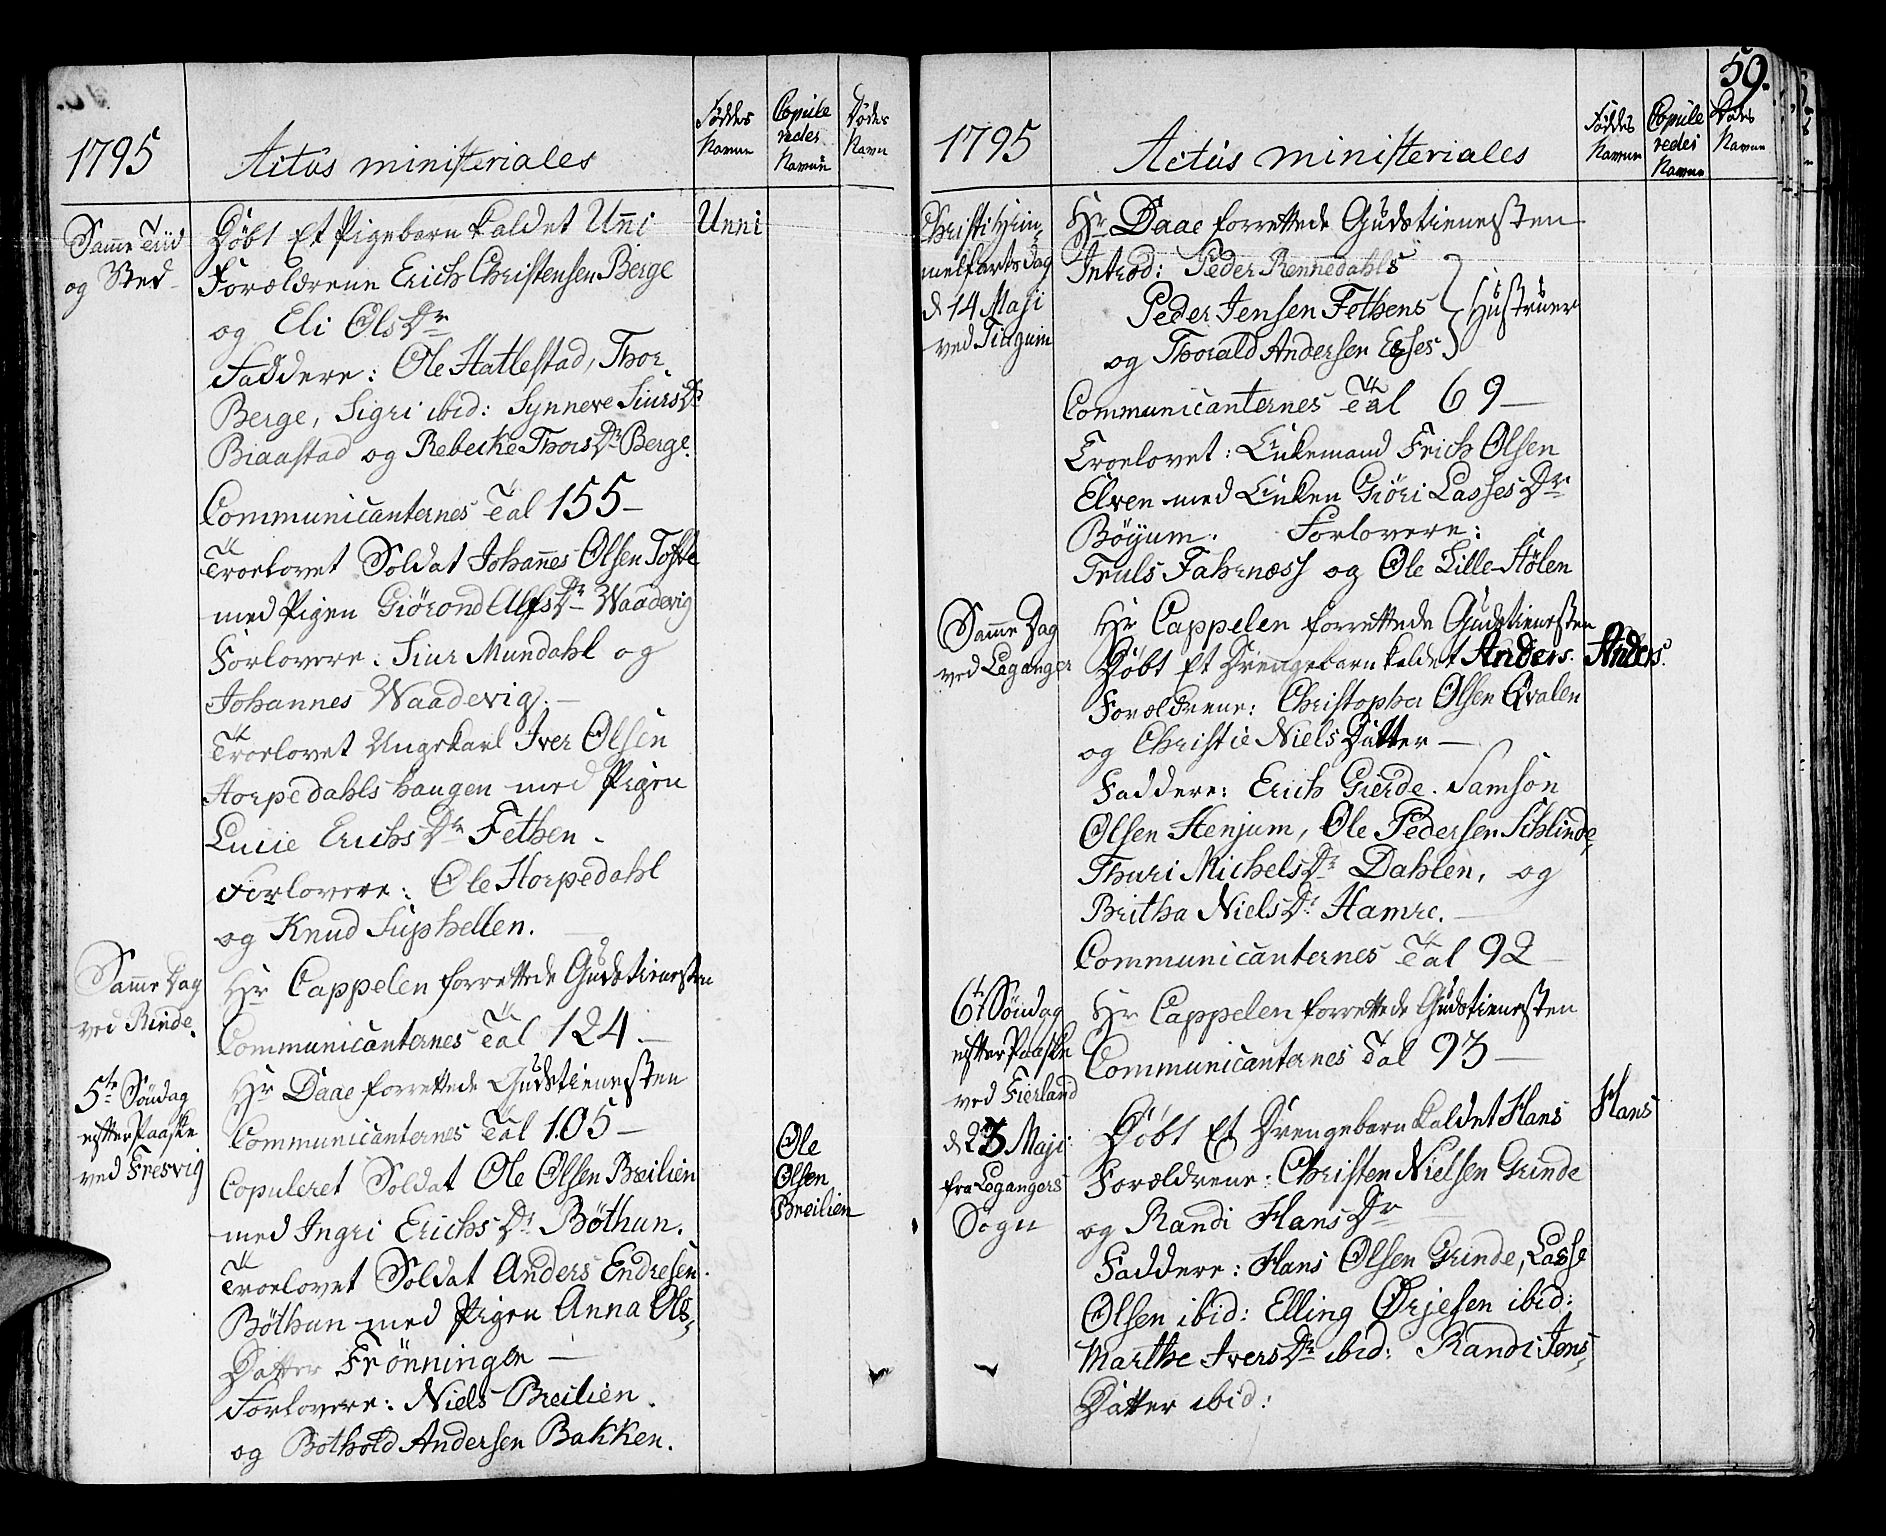 1795
Actús ministeriales
Føddes Navne
Copule redes Navne
Dødes Navn
Samme Tiid og Sted
Døbt Et Pigebarn kaldet Uñi
Unni
Forældrene Erich Christensen Berge
og Eli Ols Dr
Faddere: Ole Hatlestad, Thor
Berge, Sigri ibid: Synneve Siurs Dr
Biaastad og Rebecke Thors Dr Berge.
Communicanternes Tal 155 –
Troelovet Soldat Johañes Olsen Tofte
med Pigen Giørond Alfs Dr Waadevig
Forlovere: Siur Mundahl og
Johannes Waadevig. –
Troelovet Ungekarl Iver Olsen
Horpedahls haugen med Pigen
Lucie Erichs Dr Fethen –
Forlovere: Ole Horpedahl
og Knud Suphellen.
Samme Dag ved Rinde.
Hr Cappelen forrettede Gudstienesten
Communicanternes Tal 124 –
5te Søndag efter Paaske ved Fresvig
Hr Daae forrettede Gudstienesten
Communicanternes Tal 105 –
Copuleret Soldat Ole Olsen Breilien
Ole Olsen Breilien
med Ingri Erichs Dr Böthun.
Troelovet Soldat Anders Endresen
Böthun med Pigen Anna Ols,
Datter Frönningen –
Forlovere: Niels Breilien.
og Bothold Andersen Bakken.
59.
1795
Actús ministeriales
Føddes Navne
Copule redes Navne
Dødes Navne
Christi Him melfarts Dag d 14 Maji ved Tiugum
Hr Daae forrettede Gudstienesten
Introd: Peder Rennedahls
Peder Jensen Fethens
Hustruer
og Thorald Andersen Eses
Communicanternes Tal 69 –
Troelovet: Enkemand Erich Olsen
Elven med Enken Giöri Lasses Dr
Böyum. Forlovere:
Truls Fahrnæss og Ole Lille-Hölen
Samme Dag ved Leganger
Hr Cappelen forrettede Gudstienesten
Døbt Et Drengebarn kaldet Anders.
Anders.
Forældrene: Christopher Olsen Qvalen
og Christie Niels Datter –
Faddere: Erich Gierde. Samson
Olsen Henjum, Ole Pedersen Schlinde,
Thuri Michels Dr Dahlen, og
Britha Niels Dr Hamre. –
Communicanternes Tal 92
6te Søndag efter Paaske ved Fierland
Hr Cappelen forrettede Gudstienesten
Communicanternes Tal 93 –
d 23 Maji fra Legangers Sogn
Døbt Et Drengebarn kaldet Hans
Hans
Forældrene: Christen Nielsen Grinde
og Randi Hans Dr
Faddere: Hans Olsen Grinde, Lasse
Olsen ibid: Elling Ørjesen ibid:
Marthe Ivers Dr ibid: Randi Jens,
Datter ibid: